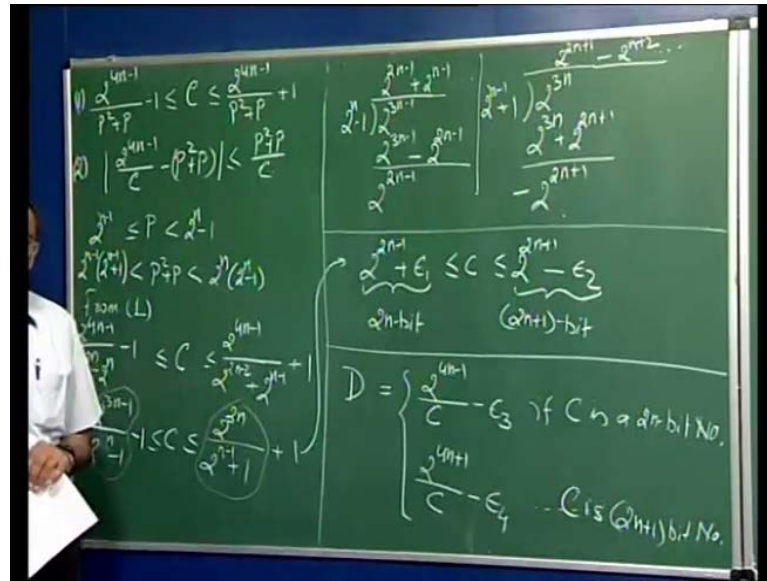 1) 2^{4n-1}/(P^2+P) - 1 ≤ C ≤ 2^{4n-1}/(P^2+P) + 1
2) | 2^{4n-1}/C - (P^2+P) | ≤ (P^2+P)/C
2^{n-1} ≤ P < 2^n - 1
2^{n-1}(2^{n-1}+1) < P^2+P < 2^n(2^n-1)
from (1)
- 1 ≤ C ≤ 2^{4n-1}/(2^{2n-2} + 2^{n-1}) + 1
2^{3n-1}/(2^n - 1) - 1 ≤ C ≤ 2^{3n}/(2^{n-1} + 1) + 1
2^{2n-1} + 2^{n-1}
2^n - 1 ) 2^{3n-1}
2^{3n-1} - 2^{2n-1}
2^{2n-1}
2^{2n+1} - 2^{n+2} ...
2^{n-1} + 1 ) 2^{3n}
2^{3n} + 2^{2n+1}
- 2^{2n+1}
2^{2n-1} + ε_1 ≤ C ≤ 2^{2n+1} - ε_2
2n-bit (2n+1)-bit
D = { 2^{4n-1}/C - ε_3 if C is a 2n-bit No.
2^{4n+1}/C - ε_4 ... C is (2n+1) bit No.